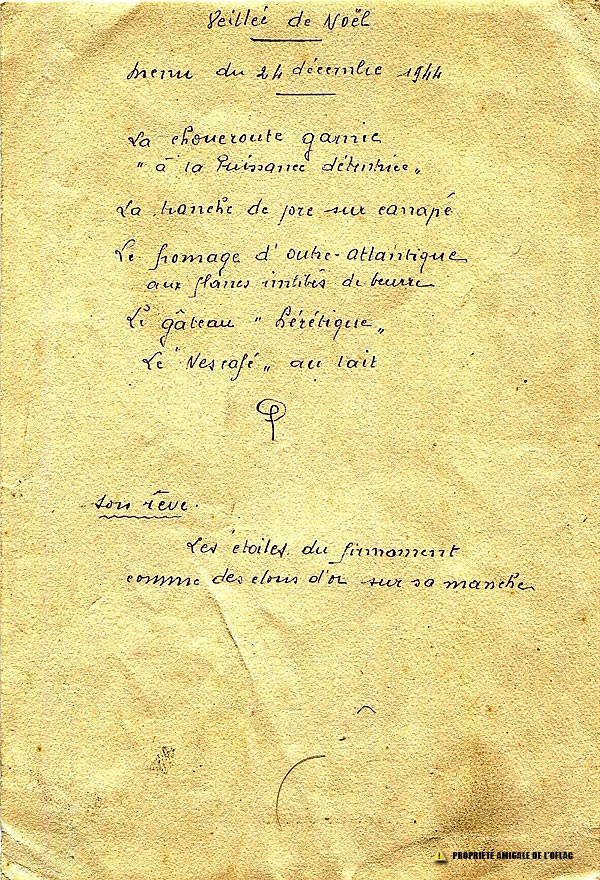 Veillée de Noël
Menu du 24 décembre 1944
La choucroute garnie
" à la Puissance détentrice "
La tranche de porc sur canapé
Le fromage d'outre-atlantique
aux flancs imbibés de beurre
Le gâteau " hérétique "
Le " Nescafé " au lait
Son rêve.
Les étoiles du firmament
comme des clous d'or sur sa manche
PROPRIÉTÉ AMICALE DE L'OFLAG